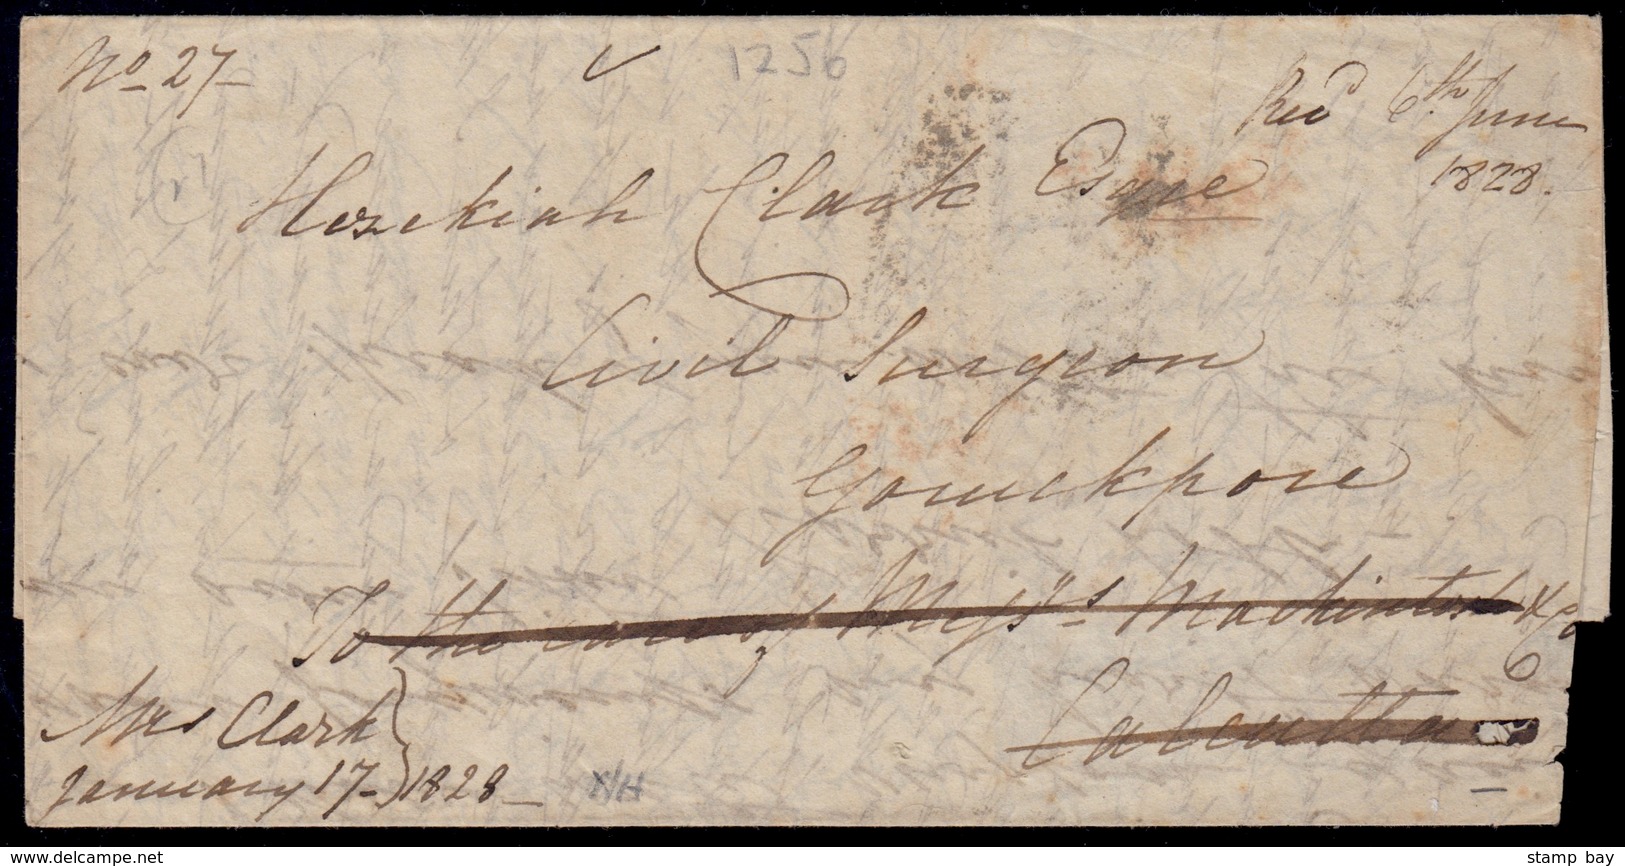 No 27
1256
Recd 6th June
1828.
Hezekiah Clark Esqre
Civil Surgeon
Goruckpore
To the care of Messrs Mackintosh & Co
Calcutta
Mrs Clark
January 17 - } 1828
stamp bay